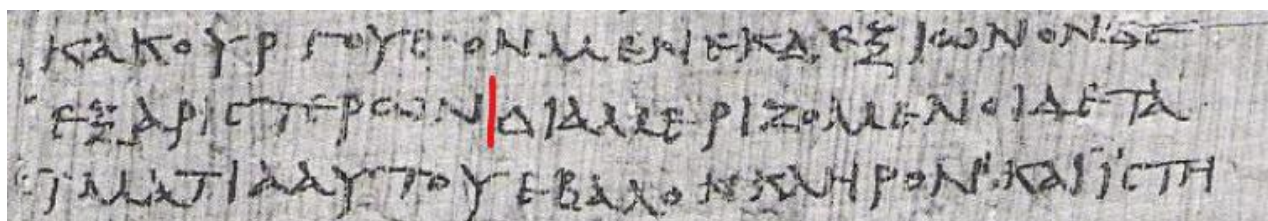 ΚΑΚΟΥΡΓΟΥϹΟΝΜΕΝΕΚΔΕΞΙΩΝΟΝΔΕ
ΕΞΑΡΙϹΤΕΡΩΝΔΙΑΜΕΡΙΖΟΜΕΝΟΙΔΕΤΑ
ΪΜΑΤΙΑΑΥΤΟΥΕΒΑΛΟΝΚΛΗΡΟΝ·ΚΑΙΪϹΤΗ